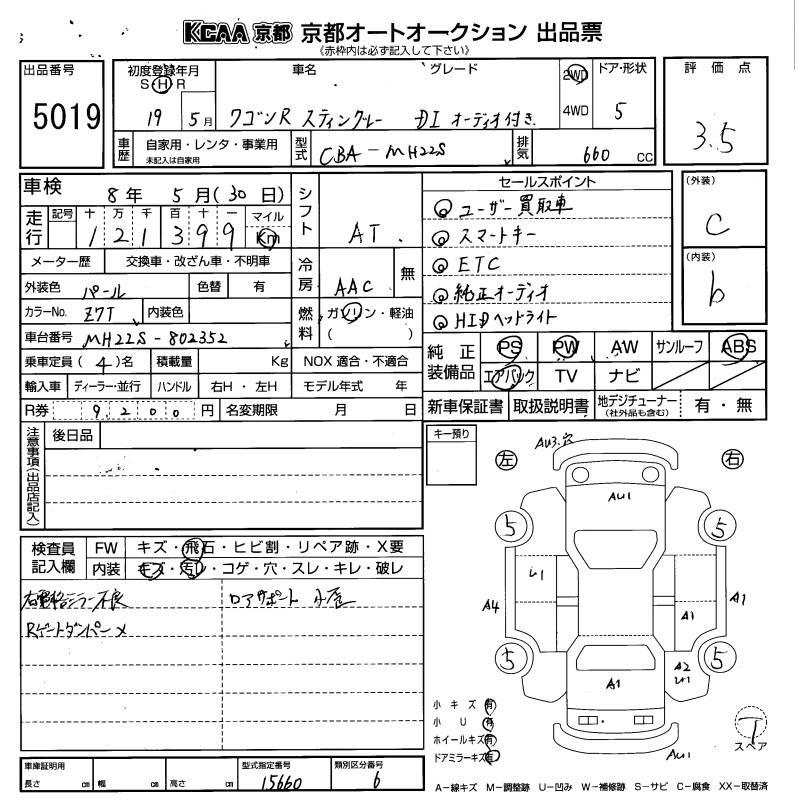 KCAA 京都 京都オートオークション 出品票
《赤枠内は必ず記入して下さい》
出品番号
5019
初度登録年月
S H R
19 5月
車名
グレード
ワゴンR スティングレー DI オーディオ付き
2WD
4WD
ドア・形状
5
評価点
3.5
車歴
自家用・レンタ・事業用
未記入は自家用
型式
CBA-MH22S
排気
660 cc
車検
8年 5月(30日)
走行
記号 十 万 千 百 十 一 マイル
1 2 1 3 9 9 Km
メーター歴 交換車・改ざん車・不明車
外装色 パール 色替 有
カラーNo. Z7T 内装色
車台番号 MH22S-802352
乗車定員 (4)名 積載量 Kg
輸入車 ディーラー・並行 ハンドル 右H・左H
R券 9200円 名変期限 月 日
シフト
AT
冷房
AAC 無
燃料
ガソリン・軽油
( )
NOX 適合・不適合
モデル年式 年
セールスポイント
ユーザー買取車
スマートキー
ETC
純正オーディオ
HIDヘッドライト
(外装)
C
(内装)
b
純正装備品
PS PW AW サンルーフ ABS
エアバック TV ナビ
新車保証書 取扱説明書 地デジチューナー(社外品も含む) 有・無
注意事項(出品店記入)
後日品
キー預り
検査員記入欄
FW キズ・飛石・ヒビ割・リペア跡・X要
内装 キズ・汚レ・コゲ・穴・スレ・キレ・破レ
右電格ミラー不良
Rゲートダンパー✓
ロアサポート 小凹
左
右
AU3.穴
AU1
5
5
U1
A4
A1
A1
5
5
A2
U1
A1
AU1
小キズ 有
小U 有
ホイールキズ 有
ドアミラーキズ 有
T
スペア
車庫証明用
長さ cm 幅 cm 高さ cm
型式指定番号
15660
類別区分番号
6
A-線キズ M-調整跡 U-凹み W-補修跡 S-サビ C-腐食 XX-取替済